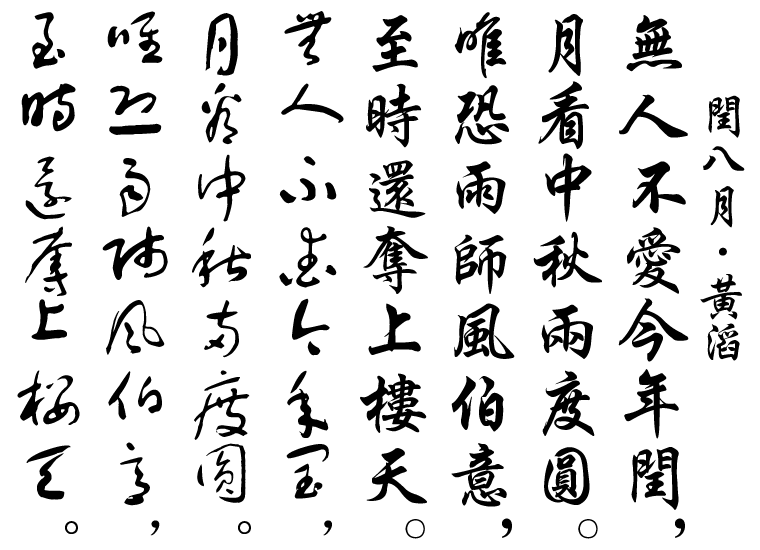 閏八月·黃滔
無人不愛今年閏，
月看中秋兩度圓。
唯恐雨師風伯意，
至時還奪上樓天。
無人不愛今年閏，
月看中秋兩度圓。
唯恐雨師風伯意，
至時還奪上樓天。